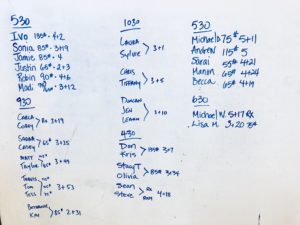 530
Ivo 135# 4+2
Sonia 85# 3+19
Jamie 85# 4
Justin 65# 2+3
Robin 90# 4+6
Madi 3+12
930
Carla
Corey 80# 3+19
Sarah
Casey 65# 3+25
Matt
Taylor 3+49
Travis
Tom
Tess 3+53
Kim 85# 2+31
1030
Laura
Sylvie 3+1
Chris
Tiffany 3+5
Duncan
Jen
Leann 3+10
430
Don
Kris 135# 3+7
Stacy T
Olivia 85# 3+34
Sean
Steve 4+18
530
Michael D 75# 5+11
Andrew 115# 5
Sarai 55# 4+21
Manon 65# 4+24
Becca 65# 4+9
630
Michael W. 5+17 RX
Lisa M. 3+20 75#